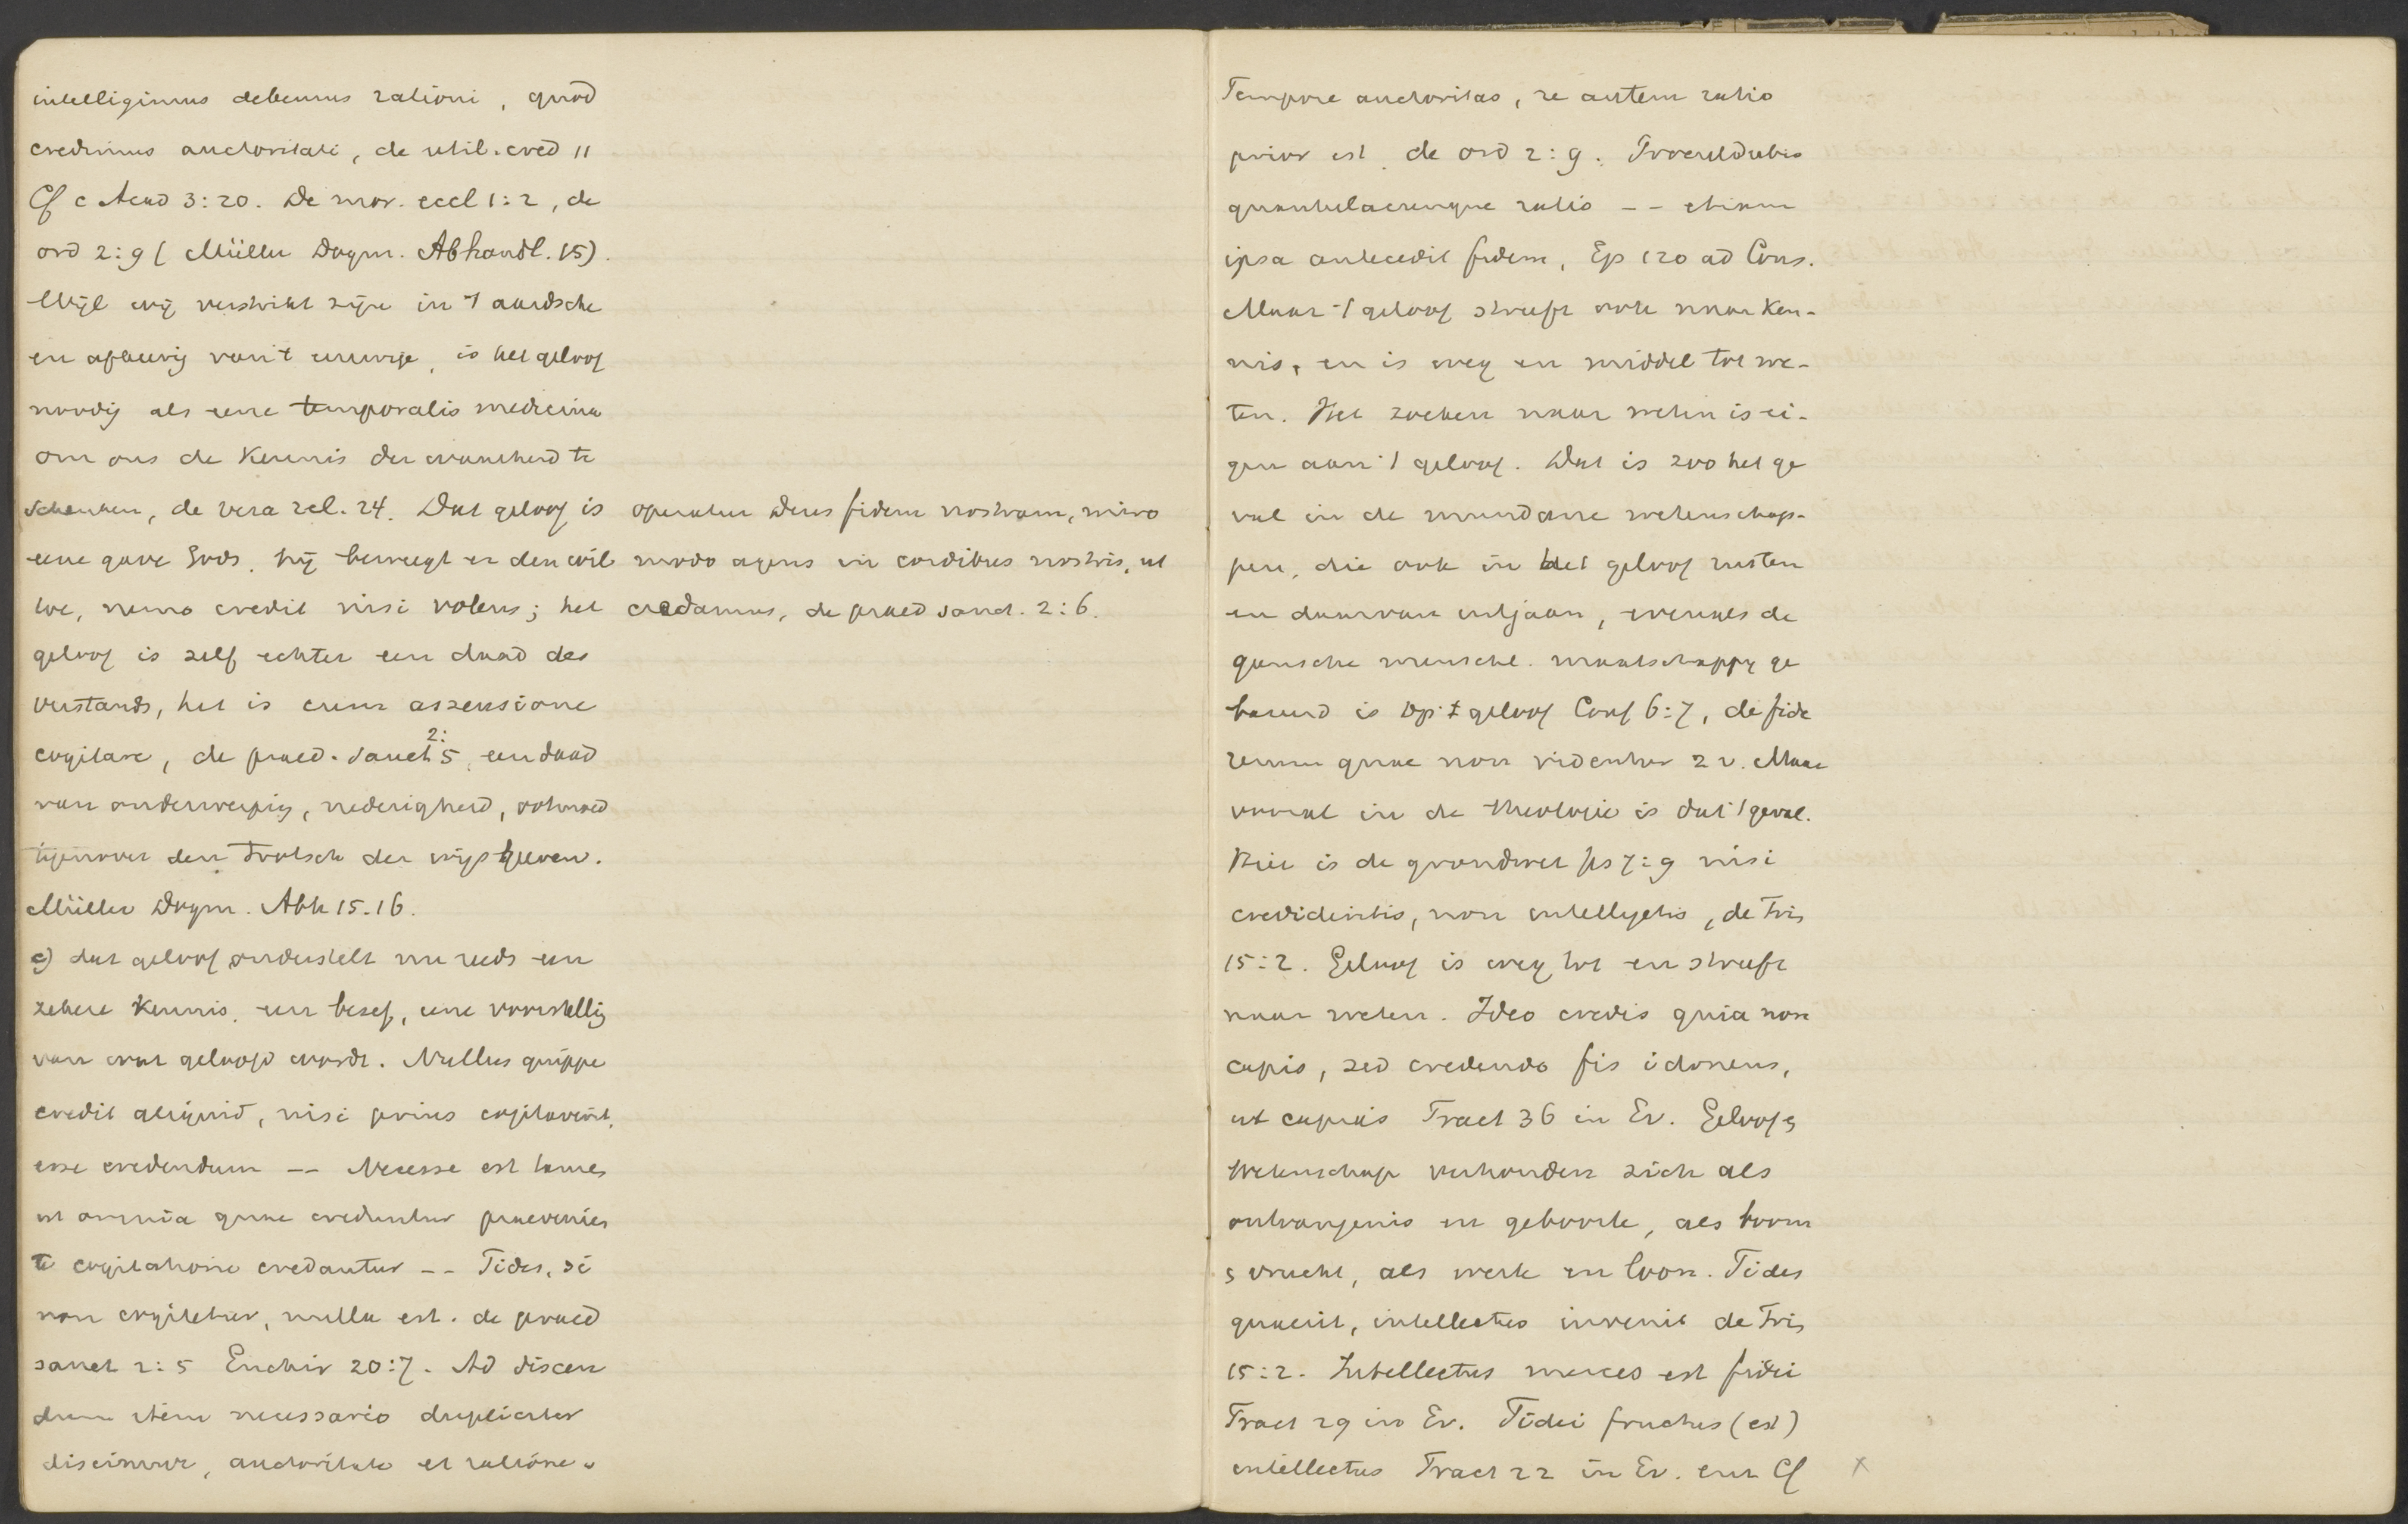 intelligimus debemus rationi, quod
credimus auctoritati, de util. cred 11
Cf c Acad 3:20. De mor. eccl 1:2, de
ord 2:9 (Müller Dogm. Abhandl. 15).
Wijl wij verstrikt zijn in 't aardsche
en afkeerig van 't eeuwige, is het geloof
noodig als eene temporalis medicina
om ons de kennis der waarheid te
schenken, de vera rel. 24. Dat geloof is
eene gave Gods, hij beweegt er den wil
toe, nemo credit nisi volens; het
geloof is zelf echter een daad des
verstands, het is cum assensione
cogitare, de praed. sanct 2:5, een daad
van onderwerping, nederigheid, ootmoed
tegenover den trotsch der wijsgeeren.
Müller Dogm. Abh 15.16.
c) dat geloof onderstelt nu reeds een
zekere kennis, een besef, eene voorstellig
van wat geloofd wordt. Nullus quippe
credit aliquid, nisi prius cogitaverit,
esse credendum -- Necesse est tamen
ut omnia quae creduntur praevenien
te cogitatione credantur -- Fides, si
non cogitetur, nulla est. de praed
sanct 2:5 Enchir 20:7. Ad discen
dum item necessario dupliciter
discimur, auctoritate et ratione.
operatur Deus fidem nostram, miro
modo agens in cordibus nostris, ut
credamus, de praed sanct. 2:6.
Tempore auctoritas, re autem ratio
prior est, de ord 2:9. Proculdubio
quantulacumque ratio -- etiam
ipsa antecedit fidem, Ep 120 ad Cons.
Maar 't geloof streeft ook naar ken-
nis, en is weg en middel tot we-
ten. Het zoeken naar weten is ei-
gen aan 't geloof. Dat is zoo het ge
val in de mundane wetenschap-
pen, die ook in het geloof rusten
en daarvan uitgaan, evenals de
gansche menschel. maatschappij ge
bouwd is op 't geloof Conf 6:7, de fide
rerum quae non videntur 2 v. Maar
vooral in de theologie is dat 't geval.
Hier is de grondwet Jes 7:9 nisi
credideritis, non intelligetis, de Trin
15:2. Geloof is weg tot en streeft
naar weten. Ideo credis quia non
capis, sed credendo fis idoneus,
ut capias Tract 36 in Ev. Geloof en
Wetenschap verhouden zich als
ontvangenis en geboorte, als boom
en vrucht, als werk en loon. Fides
quaerit, intellectus invenit de Trin
15:2. Intellectus merces est fidei
Tract 29 in Ev. Fidei fructus (est)
intellectus Tract 22 in Ev. enz Cf x